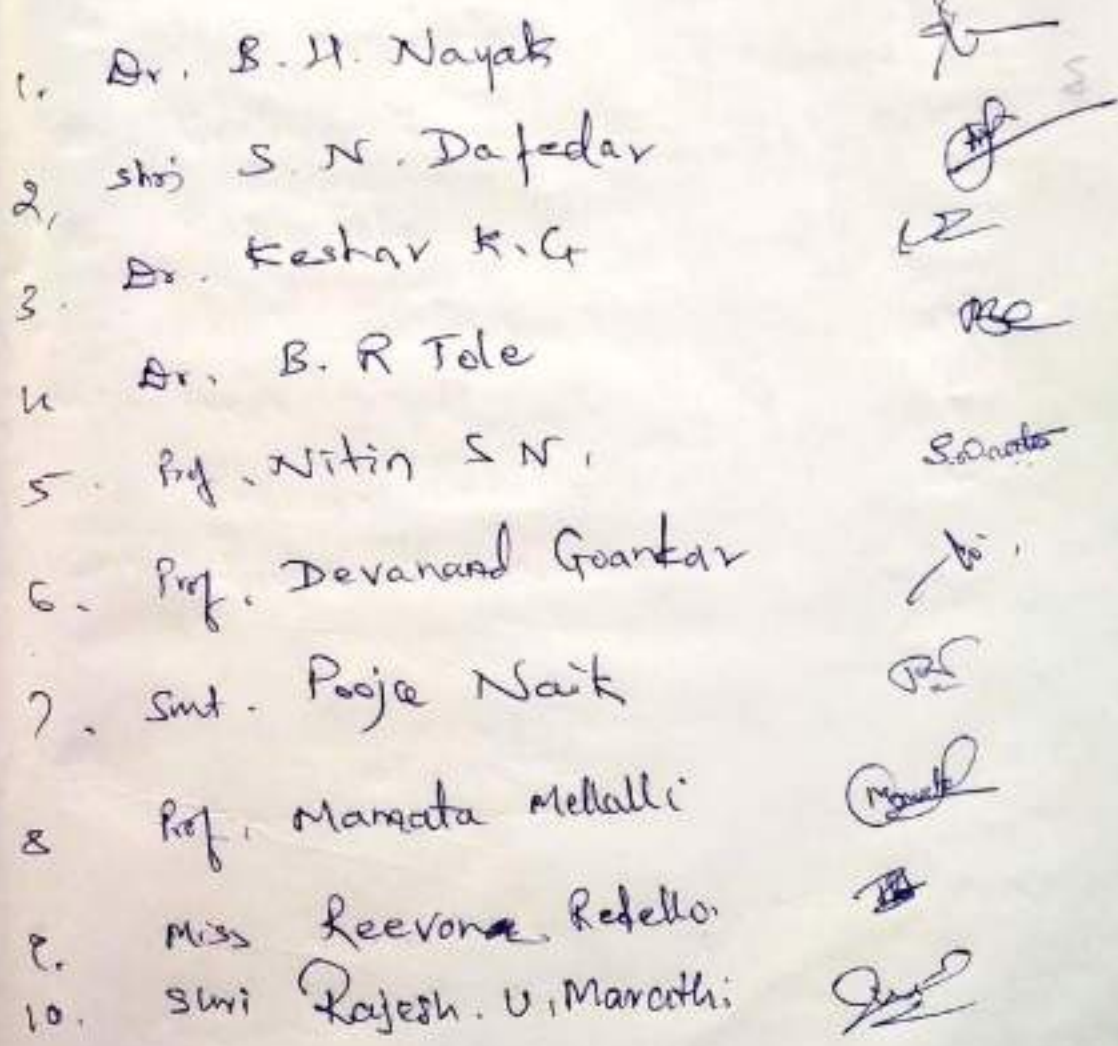 1. Dr. B.H. Nayak
2, Shri S. N. Dafedar
3. Dr. Keshav K.G
4 Dr. B. R Tole
5. Prof. Nitin S N.
6. Prof. Devanand Goankar
7. Smt. Pooja Naik
8 Prof. Mamata Mellalli
9. Miss Reevona Rebello
10. Shri Rajesh. U. Marathi